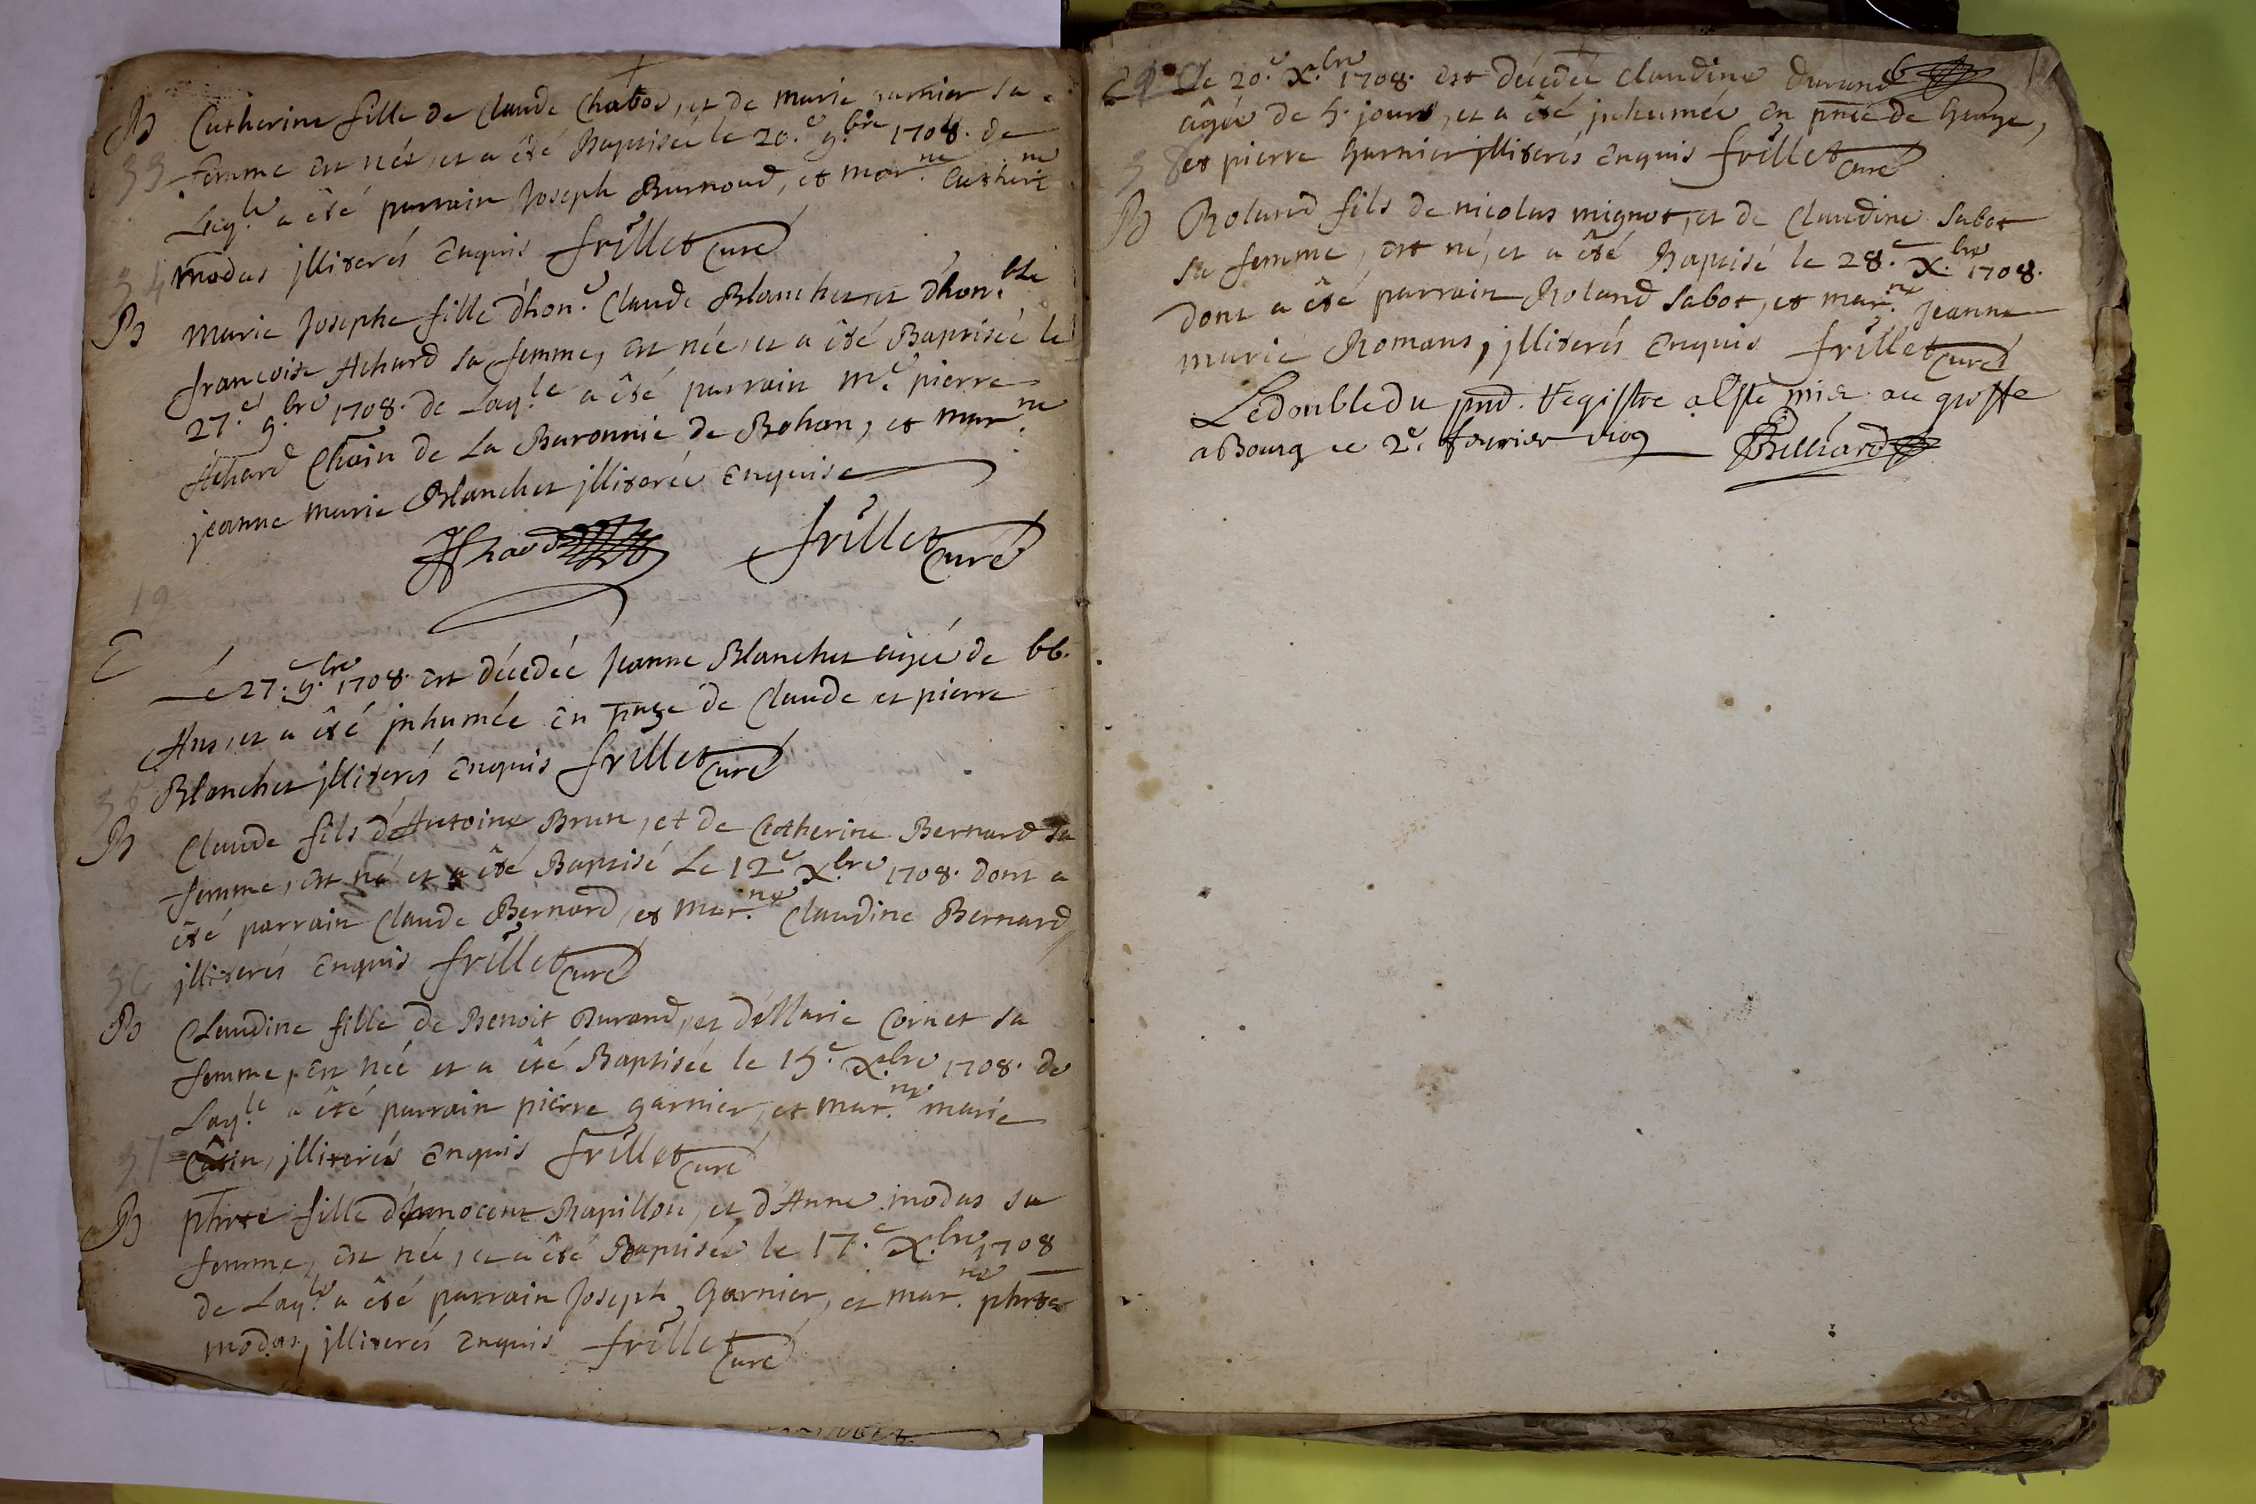 B Catherine fille de Claude Chabod, et de marie garnier sa
33 femme est née, et a êté Baptisée le 20.e 9.bre 1708. de
Laq.le a êté parrain Joseph Burnoud, et mar.ne Catheri.ne
34 modas jlliterés Enquis frillet Curé
B Marie Josephe fille d'hon.e Claude Blanchet, et d'hon.ble
francoise Achard sa femme, est née, et a êté Baptisée le
27.e 9.bre 1708. de Laq.le a êté parrain m.e pierre
Achard Chãin de La Baronnie de Bohan, et mar.ne
jeanne marie Blanchet jlliterée Enquise
Achard frillet Curé
19
E Le 27.e 9.bre 1708. est décedée Jeanne Blanchet âgée de 66.
Ans, et a êté jnhumée En de Claude et pierre
35 Blanchet jlliterés Enquis frillet Curé
B Claude fils d'Antoine Brun, et de Catherine Bernard sa
femme, est né et a êté Baptisé Le 12.e X.bre 1708. dont a
êté parrain Claude Bernard, et mar.ne Claudine Bernard,
36 jlliterés Enquis frillet Curé
B Claudine fille de Benoit Durand, et de Marie Cornet sa
femme, Est née et a êté Baptisée le 15.e X.bre 1708. de
Laq.le a êté parrain pierre garnier, et mar.ne marie
37 jlliterés Enquis frillet Curé
B phrte fille d'jnnocent Rapillon, et d'Anne modas sa
femme, est née, et a êté Baptisée le 17.e X.bre 1708
de Laq.le a êté parrain Joseph Garnier, et mar.ne phrte
modas, jlliterés Enquis frillet Curé
Le 20.e X.bre 1708. est décedée Claudine durand
âgée de 5. jours, et a êté jnhumée En pñce de
38 et pierre Garnier jlliterés Enquis frillet Curé
B Roland fils de nicolas mignot, et de Claudine Sabot
sa femme, est né, et a êté Baptisé le 28.e X.bre 1708.
dont a êté parrain Roland Sabot, et mar.ne Jeanne
marie Romans, jlliterés Enquis frillet Curé
Le double du pñt. Registre a Esté mis au greffe
a Bourg ce 2.e feurier 1709 Billiard